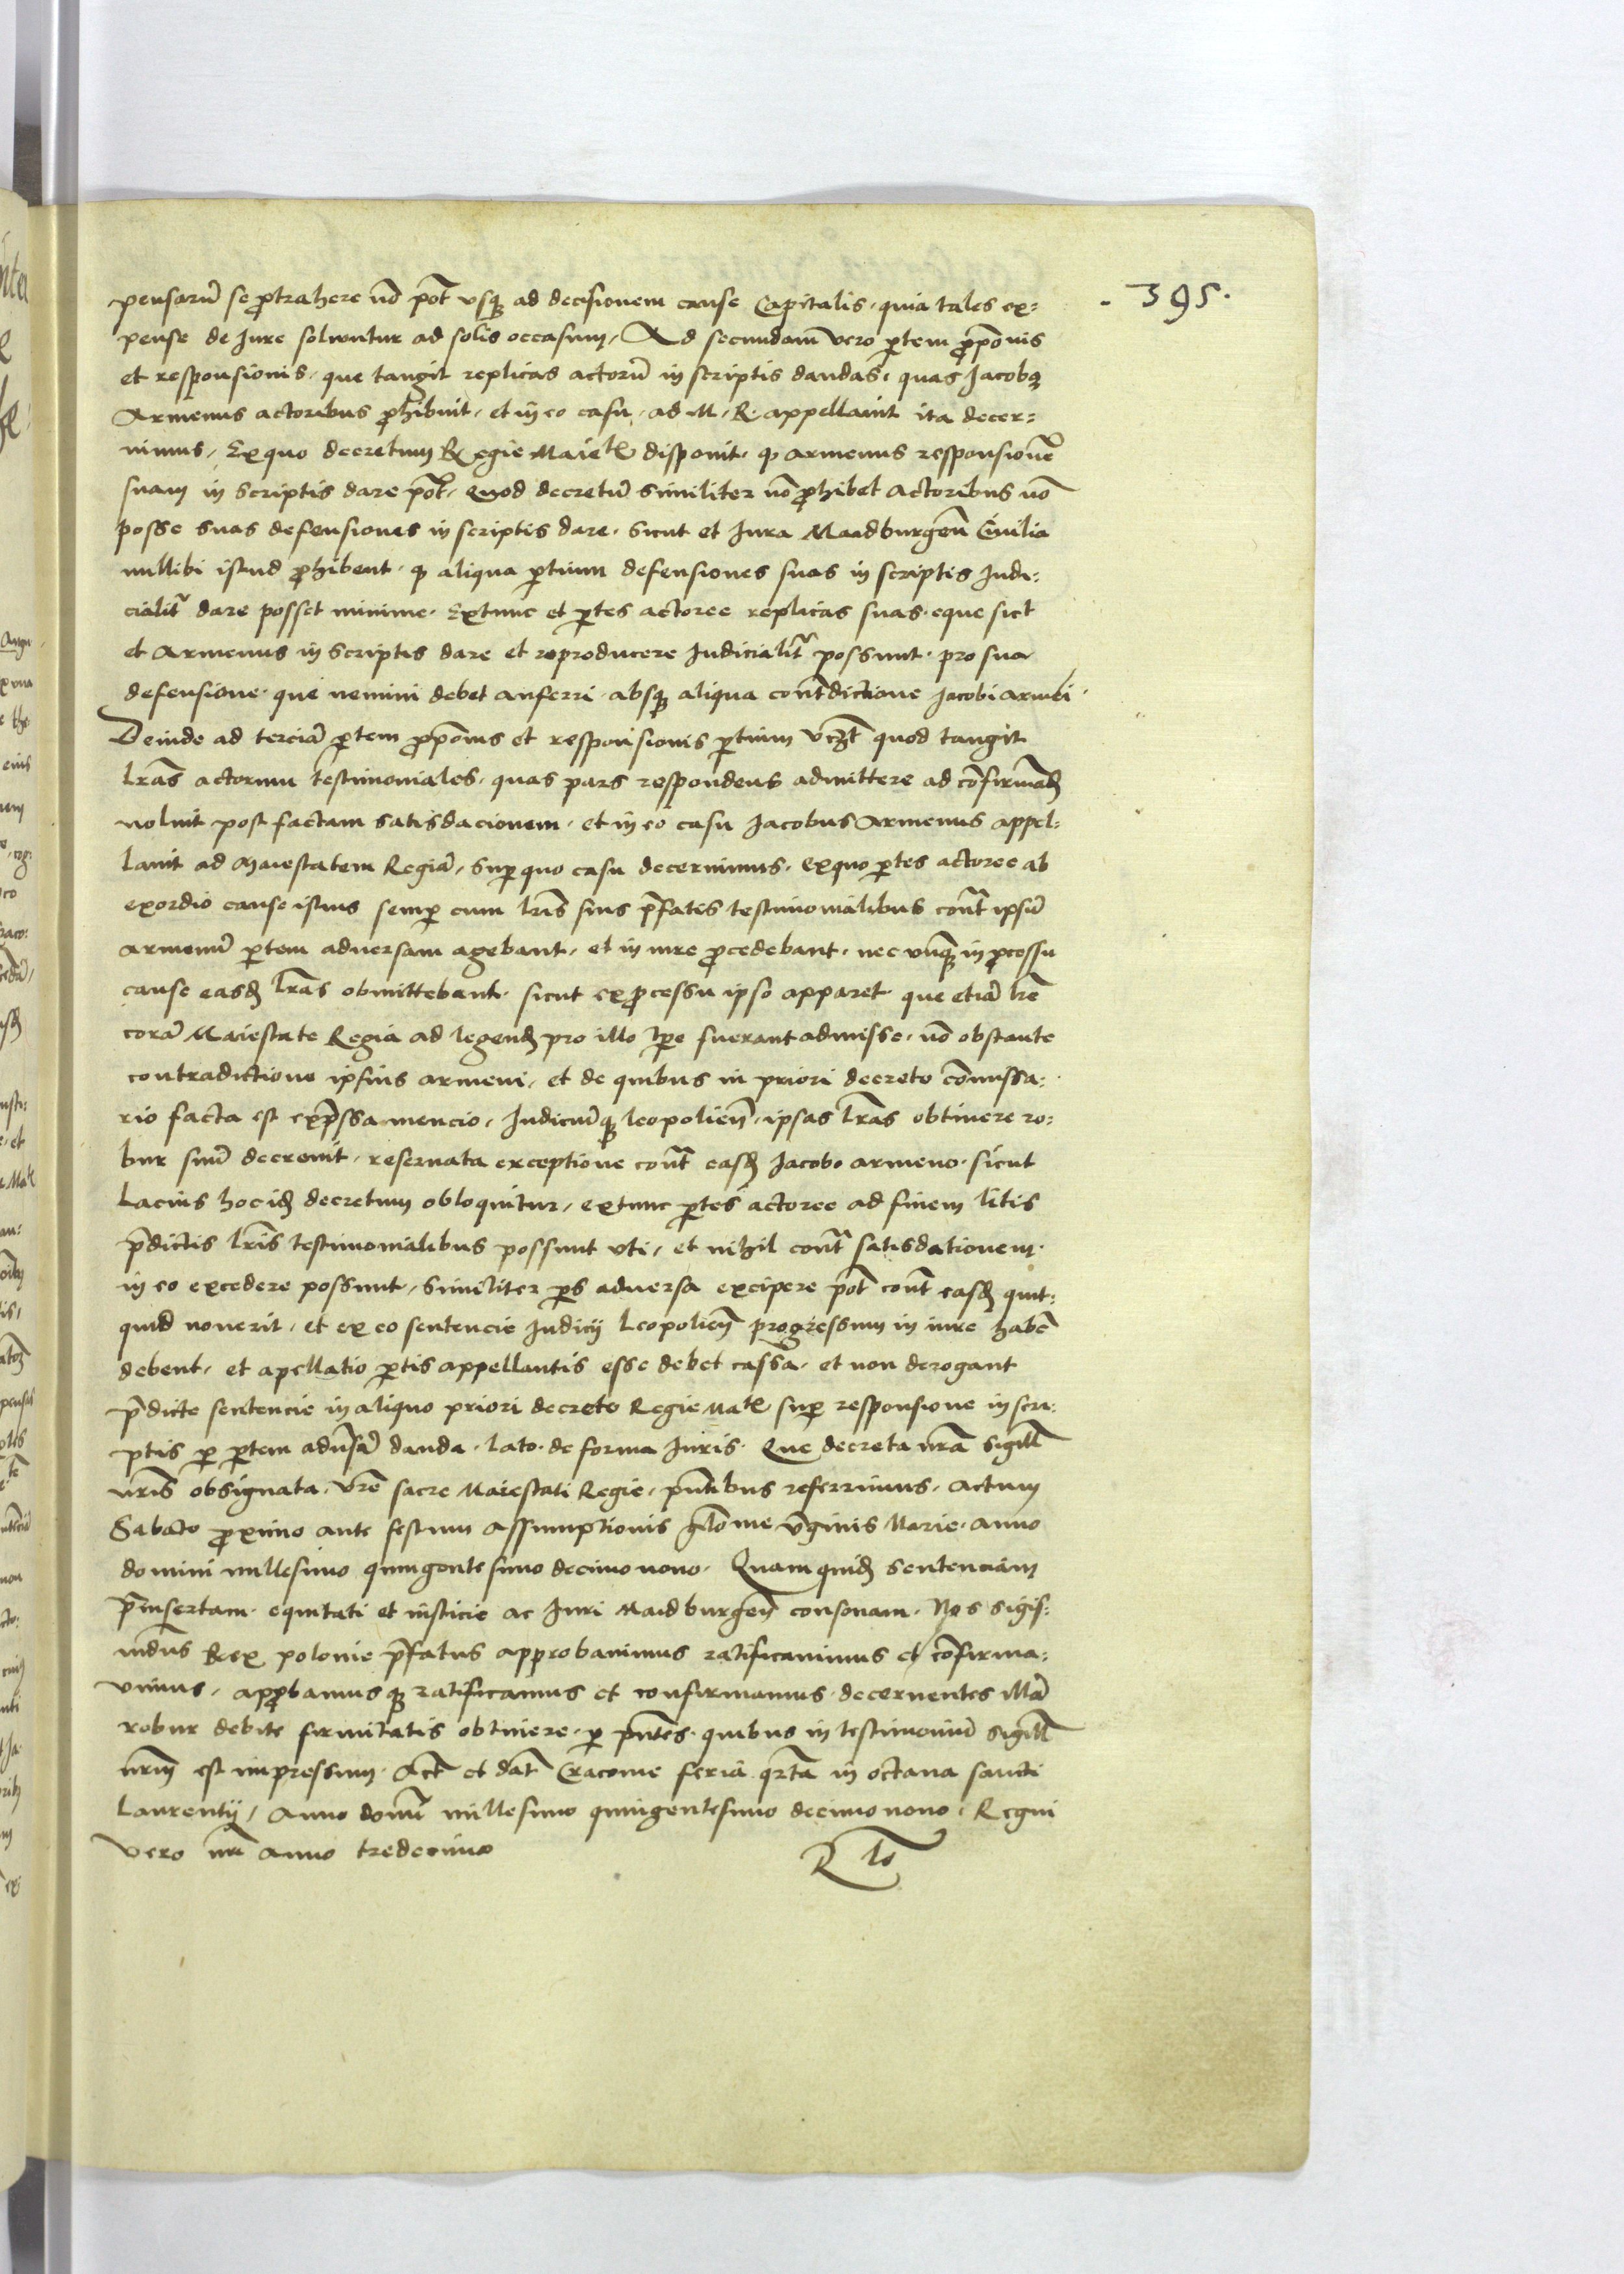 pensarū se ꝓtrahere nō pōt vsqꝫ ad decisionem cause Capitalis, quia tales ex=
pense de Jure soluuntur ad solis occasum, Ad secundam vero ꝑtem ꝓpōnis
et responsionis, que tangit replicas actorū in scriptis dandas, quas Jacobꝰ
Armenus actoribus ꝓhibuit, et in eo casu, ad M. R. appellauit ita decer=
nimus, Exquo decretum Regie Maietꝭ disponit, ꝙ armenus responsionē
suam in scriptis dare pōt, Quod decretū similiter nō ꝓhibet Actoribus nō
posse suas defensiones in scriptis dare, sicut et Jura Maadburgeñ Ciuilia
nullibi istud ꝓhibent, ꝙ aliqua ꝑtium defensiones suas in scriptis Judi:
cialitꝛ dare posset minime, Extunc et ꝑtes actoree replicas suas, eque sict
et Armenus in Scriptis dare et reproducere Judicialitꝛ possunt, pro sua
defensione, que nemini debet auferri, absqꝫ aliqua cont͞dictione Jacobi armēi.
Deinde ad terciā ꝑtem ꝓpōnis et responsionis ꝑtium vcꝫt quod tangit
lrās actorum testimoniales, quas pars respondens admittere ad cōfirmādꝫ
noluit post factam satisdacionem, et in eo casu Jacobus Armenus appel:
lauit ad Maiestatem Regiā, Suꝑ quo casu decernimus, exquo ꝑtes actoree ab
exordio cause istius semꝑ cum lrīs suis p̄fatis testimonialibus cont͞ ipsū
armenū ꝑtem aduersam agebant, et in iure ꝓcedebant, nec vnqꝫ in ꝓcessu
cause easdꝫ lrās obmittebant, sicut ex ꝓcessu ipso apparet, que etiā lrē
corā Maiestate Regia ad legendꝫ pro illo tꝑe fuerant admisse, nō obstante
contradictione ipsius armeni, et de quibus in priori decreto cōmissa:
rio facta est exp̄ssa mencio, Judiciūqꝫ leopolieñ, ipsas lrās obtinere ro:
bur suū decreuit, reseruata exceptione cont͞ easdꝫ Jacobo armeno, sicut
Lacius hoc idꝫ decretum obloquitur, extunc ꝑtes actoree ad finem litis
p̄dictis lrīs testimonialibus possunt vti, et nihil cont͞ satisdationem
in eo excedere possunt, Similiter ꝑs aduersa excipere pōt cont͞ easdꝫ quit:
quid nouerit, et ex eo sentencie Judicij Leopolieñ progressum in iure habeē
debent, et apellatio ꝑtis appellantis esse debet cassa, et non derogant
p̄dicte sentencie in aliquo priori decreto Regie Matꝭ suꝑ responsione in scri:
ptis ꝑ ꝑtem adūsā danda, lato, de forma Juris. Que decreta nrā sigillꝭ
nrīs obsignata, vrē sacre Maiestati Regie, pn̄tibus referrimus, Actum
Sabato ꝓximo ante festum Assumptionis glōme v̄ginis Marie, Anno
domini millesimo quingentesimo decimo nono. Quam quidꝫ sentenciam
p̄insertam, equitati et iusticie ac Juri Maidburgeñ consonam, Nos sigis:
mdūs Rex polonie p̄fatus approbauimus ratificauimus et cōfirma:
vimus, apꝓbamusqꝫ ratificamus et confirmamus, decernentes illā
robur debite firmitatis obtinere, ꝑ pn̄tes, quibus in testimoniū sigillꝭ
nrm̄ est impressum. Act͞ et dat͞ Cracouie feria qr̄ta in octaua sancti
Laurentij, Anno domī millesimo quingentesimo decimo nono, Regni
vero nrī anno tredecimo
Rta
. 395 .